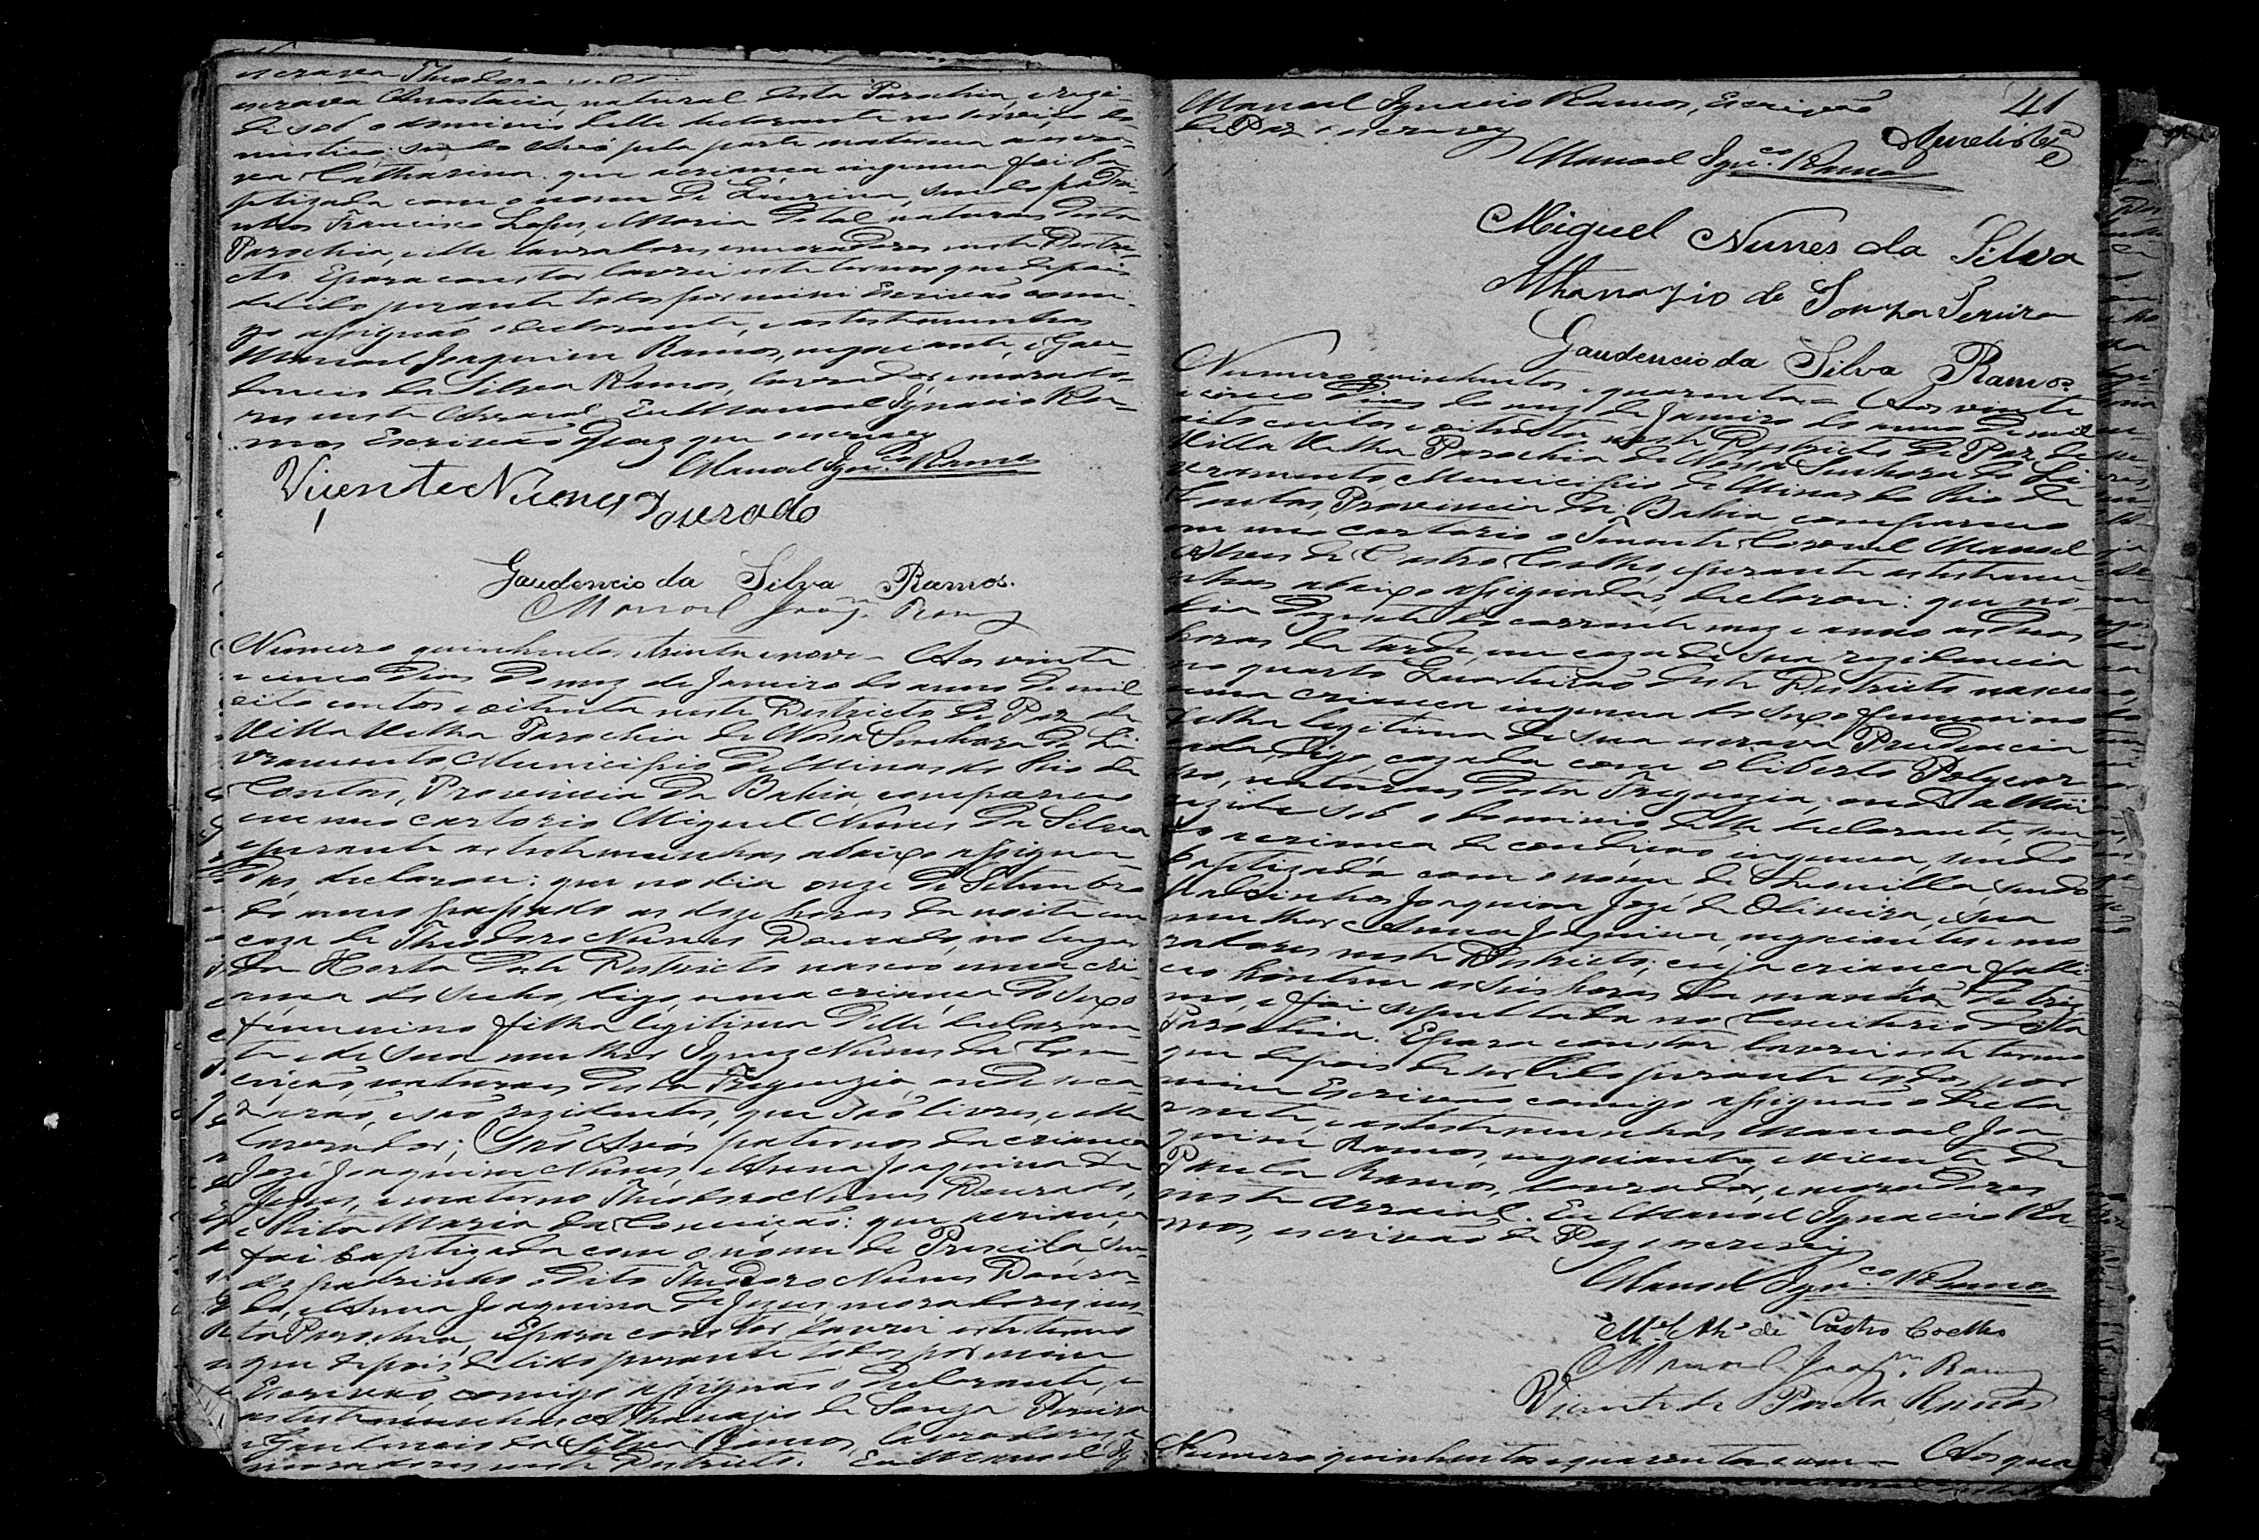 escrava Theodora
escrava Anastacia, natural desta Parochia, e rezi-
de sob o dominio delle declarante no serviço do-
mestico: sendo Avó pela parte materna a escra-
va Catharina. que a criança ingenua foi ba-
ptizada com o nome de sendo padri-
nhos Francisco Lopes, e Maria de tal naturaes desta
Parochia, elle lavradores e moradores neste Distri-
cto. E para constar lavrei este termo que depois
de lido perante todos por mim Escrivão com-
go assignaõ o declarante, e as testemunhas
Manoel Joaquim Ramos, negociante, e Gau-
dencio da Silva Ramos, lavrador, e morado-
res neste Arraial. Eu Manoel Ignacio Ra-
mos Escrivão de Paz que escrevi
Manoel Ignco. Ramos
Vicente Nunes Dourado
Gaudencio da Silva Ramos.
Manoel Joaqm. Ramos
Numero quinhentos e trinta e nove - Aos vinte
e cinco dias do mez de Janeiro do anno de mil
oito centos e oitenta neste Districto de Paz da
Villa Velha Parochia de Nossa Senhora do Li-
vramento Municipio de Minas do Rio de
Contas, Provincia da Bahia, compareceo
em meo cartorio Miguel Nunes da Silva
e perante as testemunhas abaixo assigna-
das, declarou: que no dia onze de Setembro
do anno passado as doze horas da noite em
caza de Theodoro Nunes Dourado, no lugar
da Horta deste Districto nasceo uma cri-
ança do sucho, digo, uma criança do sexo
feminino filha legitima delle declaran-
te e de sua mulher Ignez Nunes da Con-
ceição, naturaes desta Freguezia, onde se ca-
zaraõ, e saõ rezidentes, que saõ livres, e elle
lavrador; Saõ Avós paternos da criança
José Joaquim Nunes, e Anna Joaquina de
Jesus, e materno Theodoro Nunes Dourado,
e Rita Maria da Conceição: que a criança
foi baptizada com o nome de Priscila, sen-
do padrinho o dito Theodoro Nunes Doura-
do, e Anna Joaquina de Jezus, moradores nes-
ta Parochia, E para constar lavrei este termo
que depois de lido perante todos por mim
Escrivão, comigo assignaõ o declarante, e
as testemunhas Athanazio de Souza Pereira
e Gaudencio da Silva Ramos, lavradores, e
moradores neste Districto. Eu Manoel Ig
Manoel Ignacio Ramos, Escrivão
de Paz o escrevy
41
Manoel Ignco. Ramos
Miguel Nunes da Silva
Athanazio de Souza Pereira
Gaudencio da Silva Ramos.
Numero quinhentos e quarenta - Aos vinte
e cinco Dias do mez de Janeiro do anno de mil
oito centos e oitenta neste Districto de Paz da
Villa Velha Parochia de Nossa Senhora do Li-
vramento, Municipio de Minas do Rio de
Contas, Provincia da Bahia, compareceo
em meo cartorio o Tenente Coronel Manoel
Alves de Castro Coelho, e perante as testemu-
nhas abaixo assignadas, declarou: que no
dia dezesete do corrente mez e anno as duas
horas da tarde, em caza de sua rezidencia
no quarto Quarteiraõ deste Districto nasceo
uma criança ingenua do sexo feminino
filha legitima de sua escrava Prudencia
digo, cazada com o liberto Polycar-
po, naturaes desta Freguezia, onde a Mãi
rezide sob o dominio delle declarante, sen-
do a criança de condição ingenua, sendo
baptizada com o nome de sendo
Padrinhos Joaquim José de Oliveira, e sua
mulher Anna Joaquina, negociantes e mo-
radores neste Districto, cuja criança falle-
ceo hontem as seis horas da manhã de
e foi sepultada no Cemiterio desta
Parochia. E para constar lavrei este termo
que depois de ser lido perante todos por
mim Escrivão comigo assignaõ o decla-
rante, e as testemunhas Manoel Joa-
quim Ramos, negociante, e Vicente de
Paula Ramos, lavrador, e moradores
neste Arraial. Eu Manoel Ignacio Ra-
mos, escrivão de Paz o escrevi
Manoel Ignco. Ramos
Mel. Alz. de Castro Coelho
Manoel Joaqm. Ramos
Vicente de Paula Ramos
Numero quinhentos e quarenta e um - Aos qua